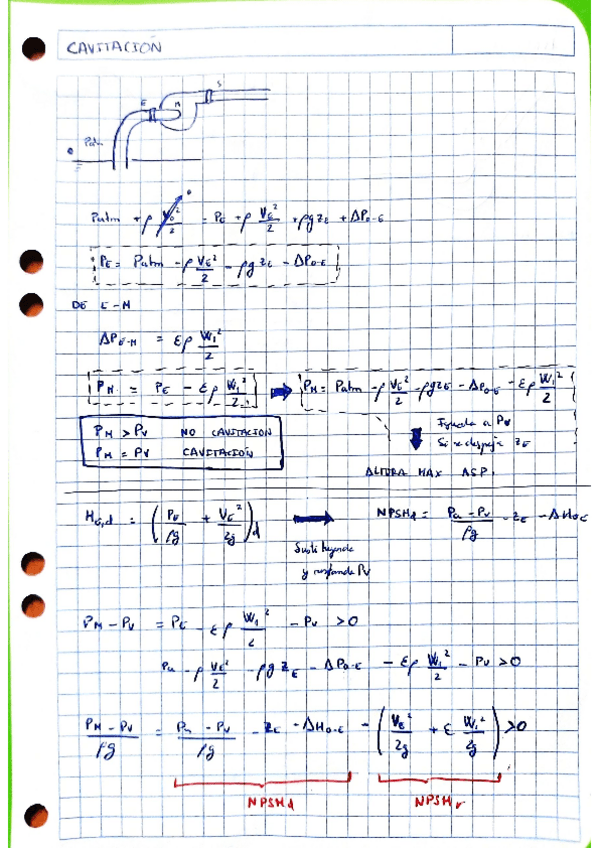 CAVITACIÓN
S
E M
Patm
0
Patm + ρ V₀²/2 = PE + ρ VE²/2 + ρgzE + ΔP0-E
0
PE = Patm - ρ VE²/2 - ρgzE - ΔP0-E
DE E-M
ΔPE-M = ερ W₁²/2
PM = PE - ερ W₁²/2 → PM = Patm - ρ VE²/2 - ρgzE - ΔP0-E - ερ W₁²/2
PM > PV NO CAVITACION
PM = PV CAVITACIÓN
Iguala a PV
Si se despeja zE
ALTURA MAX ASP.
HE,d = (PE/ρg + VE²/2g)d → NPSHd = Pa - PV/ρg - zE - ΔH0-E
Sustituyendo
y restando PV
PM - PV = PE - ερ W₁²/2 - PV > 0
Pa - ρ VE²/2 - ρgzE - ΔP0-E - ερ W₁²/2 - PV > 0
PM - PV/ρg = Pa - PV/ρg - zE - ΔH0-E - (VE²/2g + ε W₁²/2g) > 0
NPSHd NPSHr